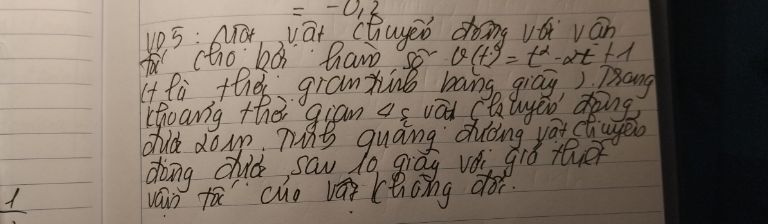 = -0,2
VD5: Một vật chuyển động với vận
tốc cho bởi hàm số v(t) = t² - 2t + 1
(t là thời gian tính bằng giây). Trong
khoảng thời gian 4s vật chuyển động
được 20m. Tính quãng đường vật chuyển
động được sau 10 giây với giả thiết
vận tốc của vật không đổi.
1